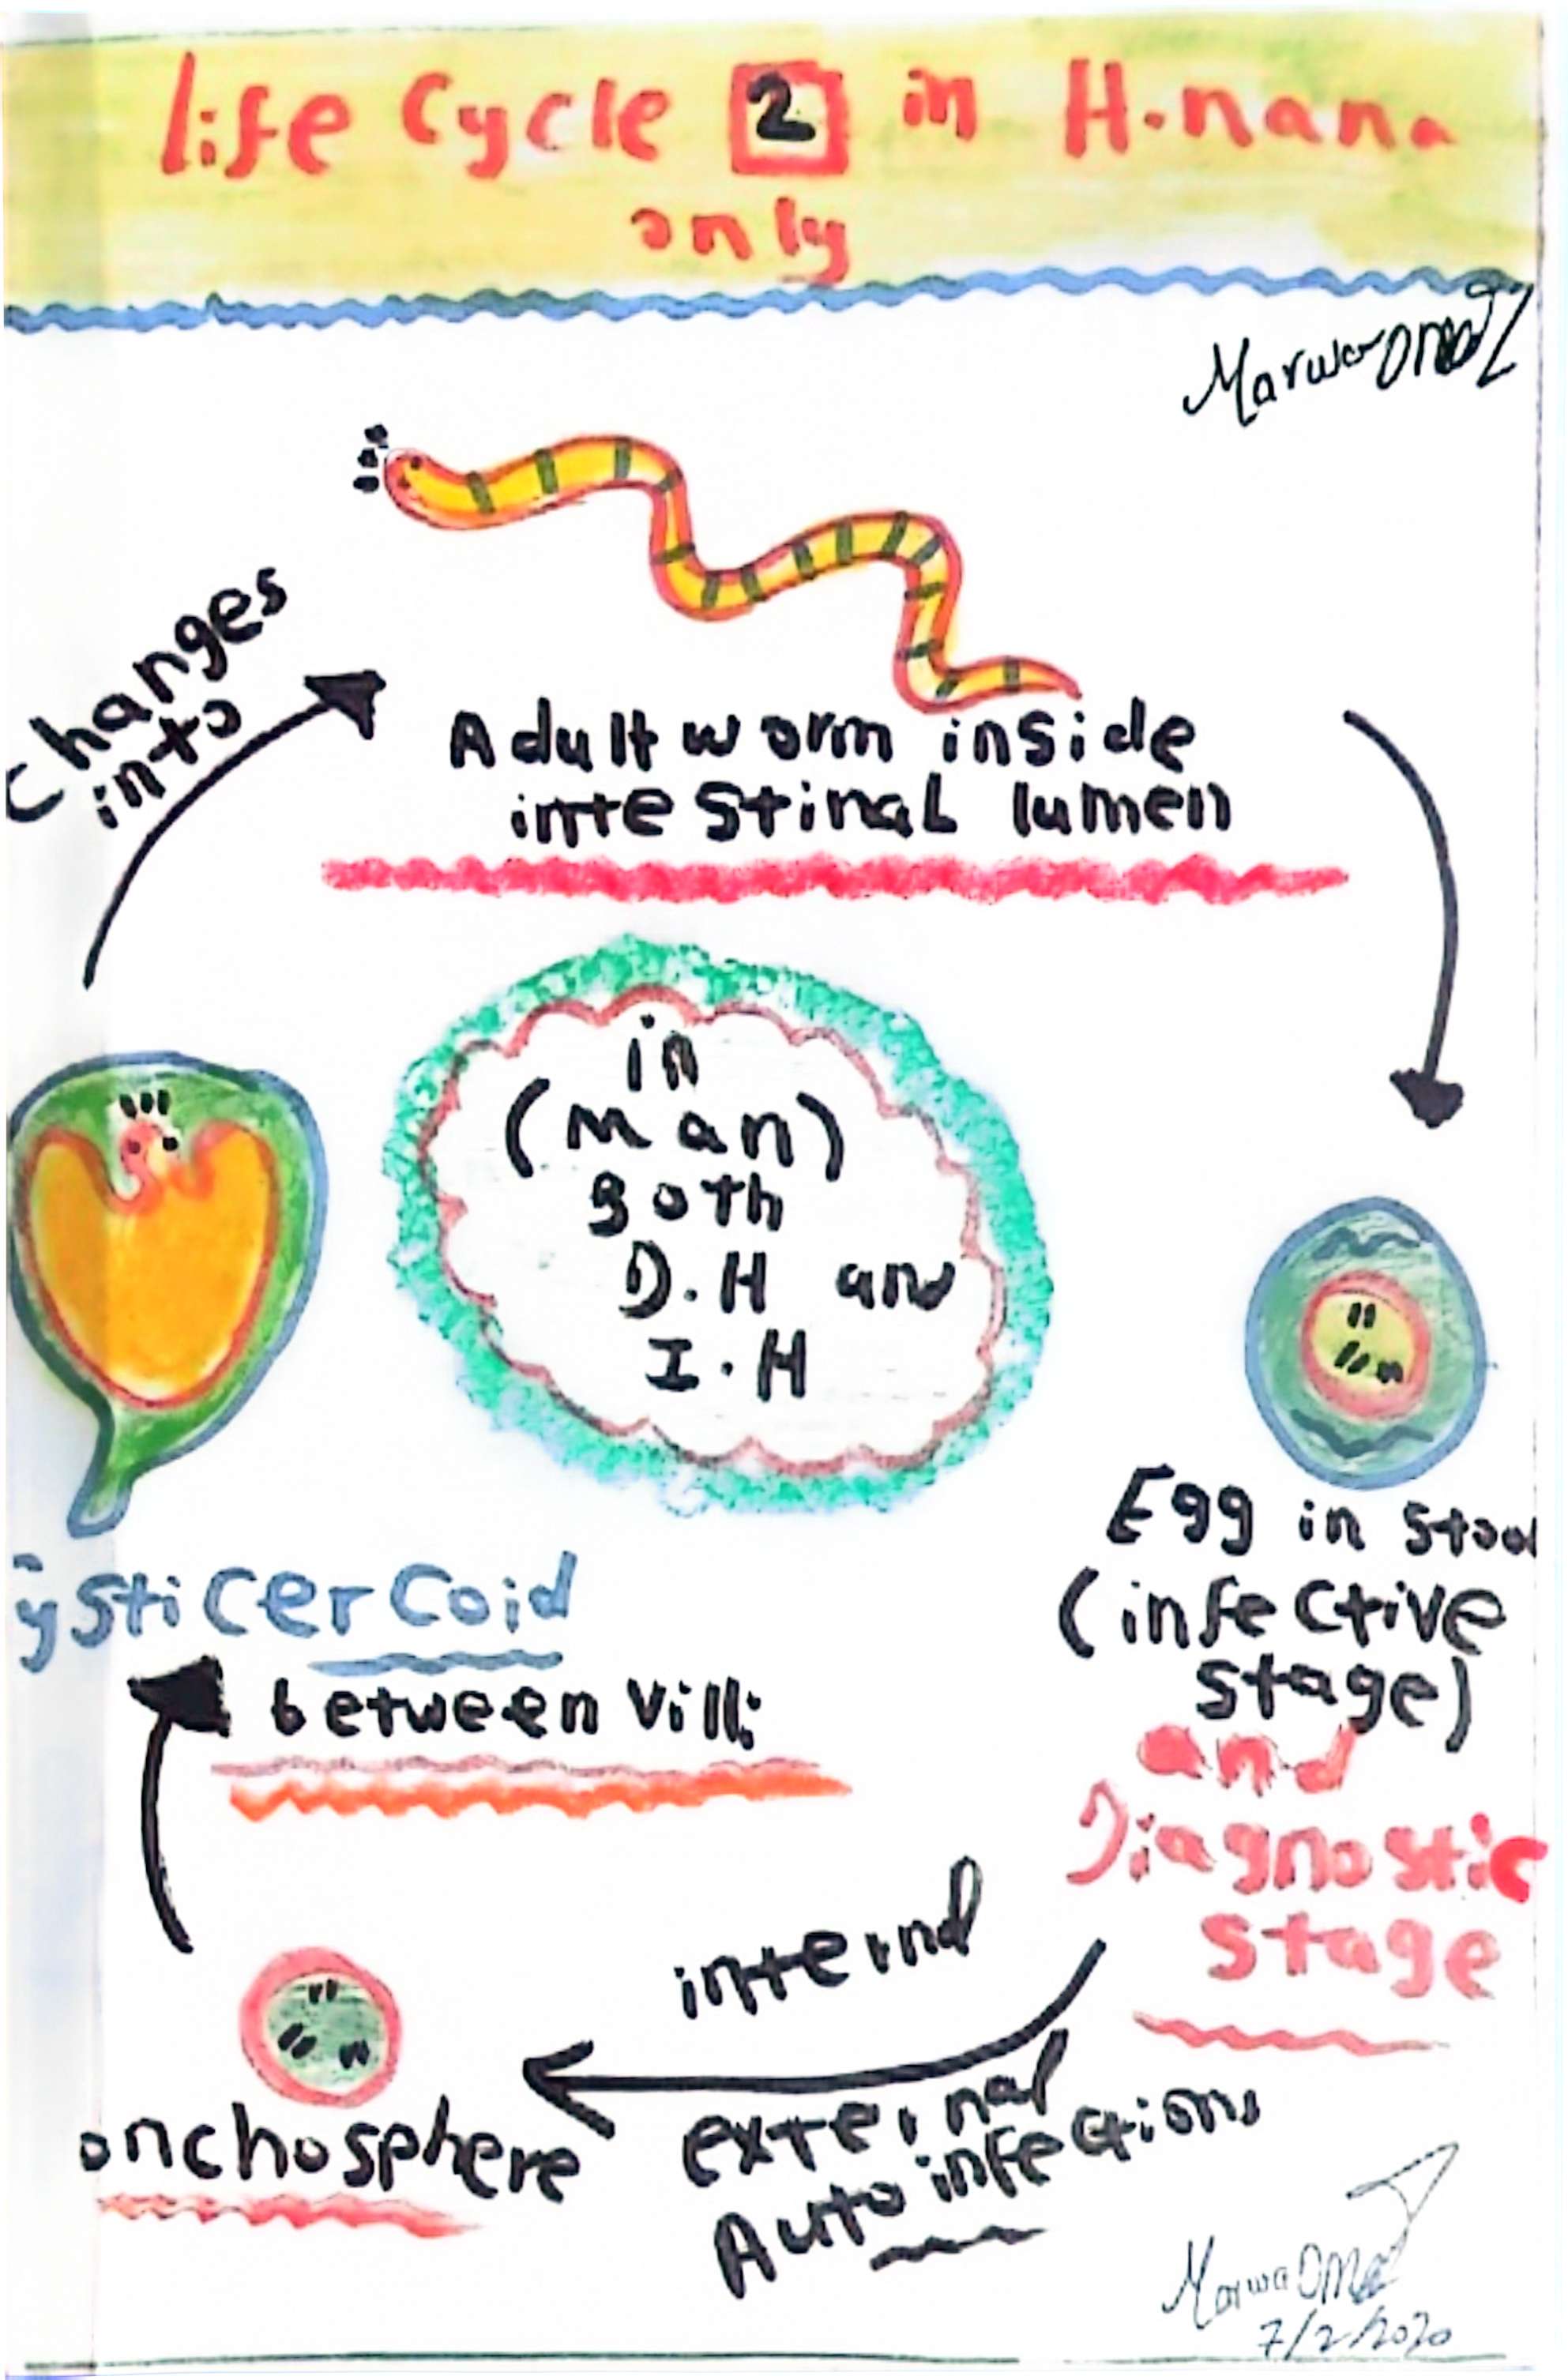 life Cycle 2 in H.nana
only
Changes
into
Adult worm inside
intestinal lumen
in
(man)
Both
D.H and
I.H
Egg in stool
(infective
stage)
and
Diagnostic
stage
ysticercoid
between villi
internal
external
Auto infections
onchosphere
Marwa
7/2/2020